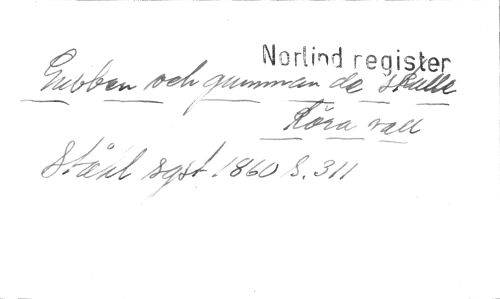 Norlind register
Gubben och gumman de skulle
köra vall
Ståhl sgst. 1860 s. 311